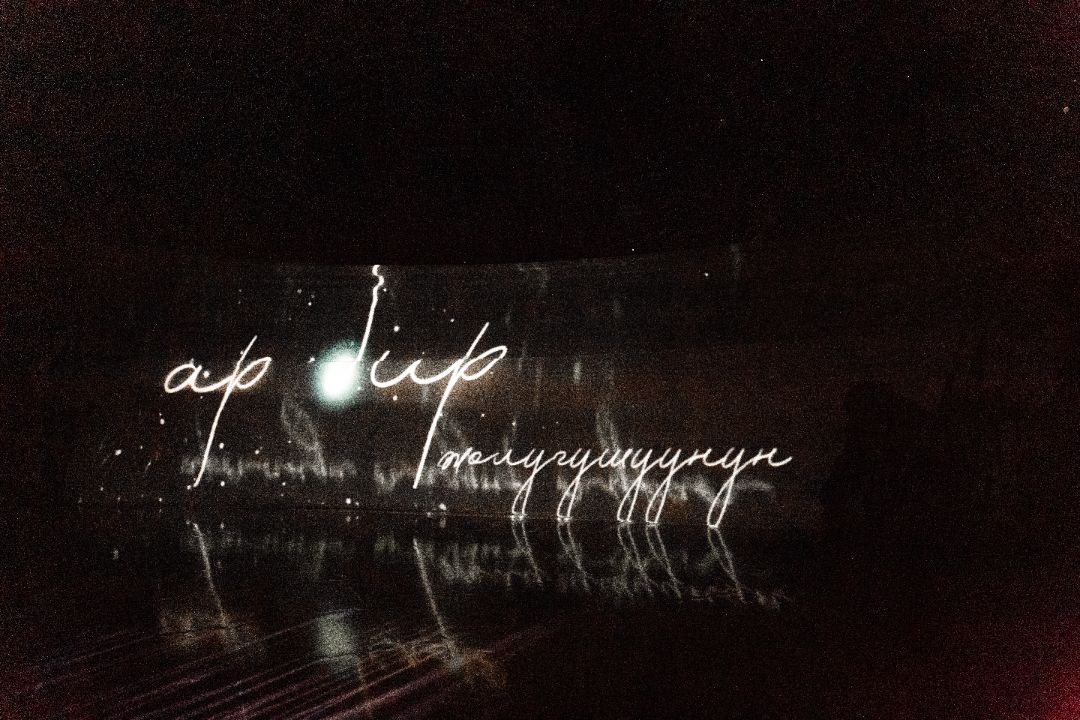 ар бир
жолугушуунун